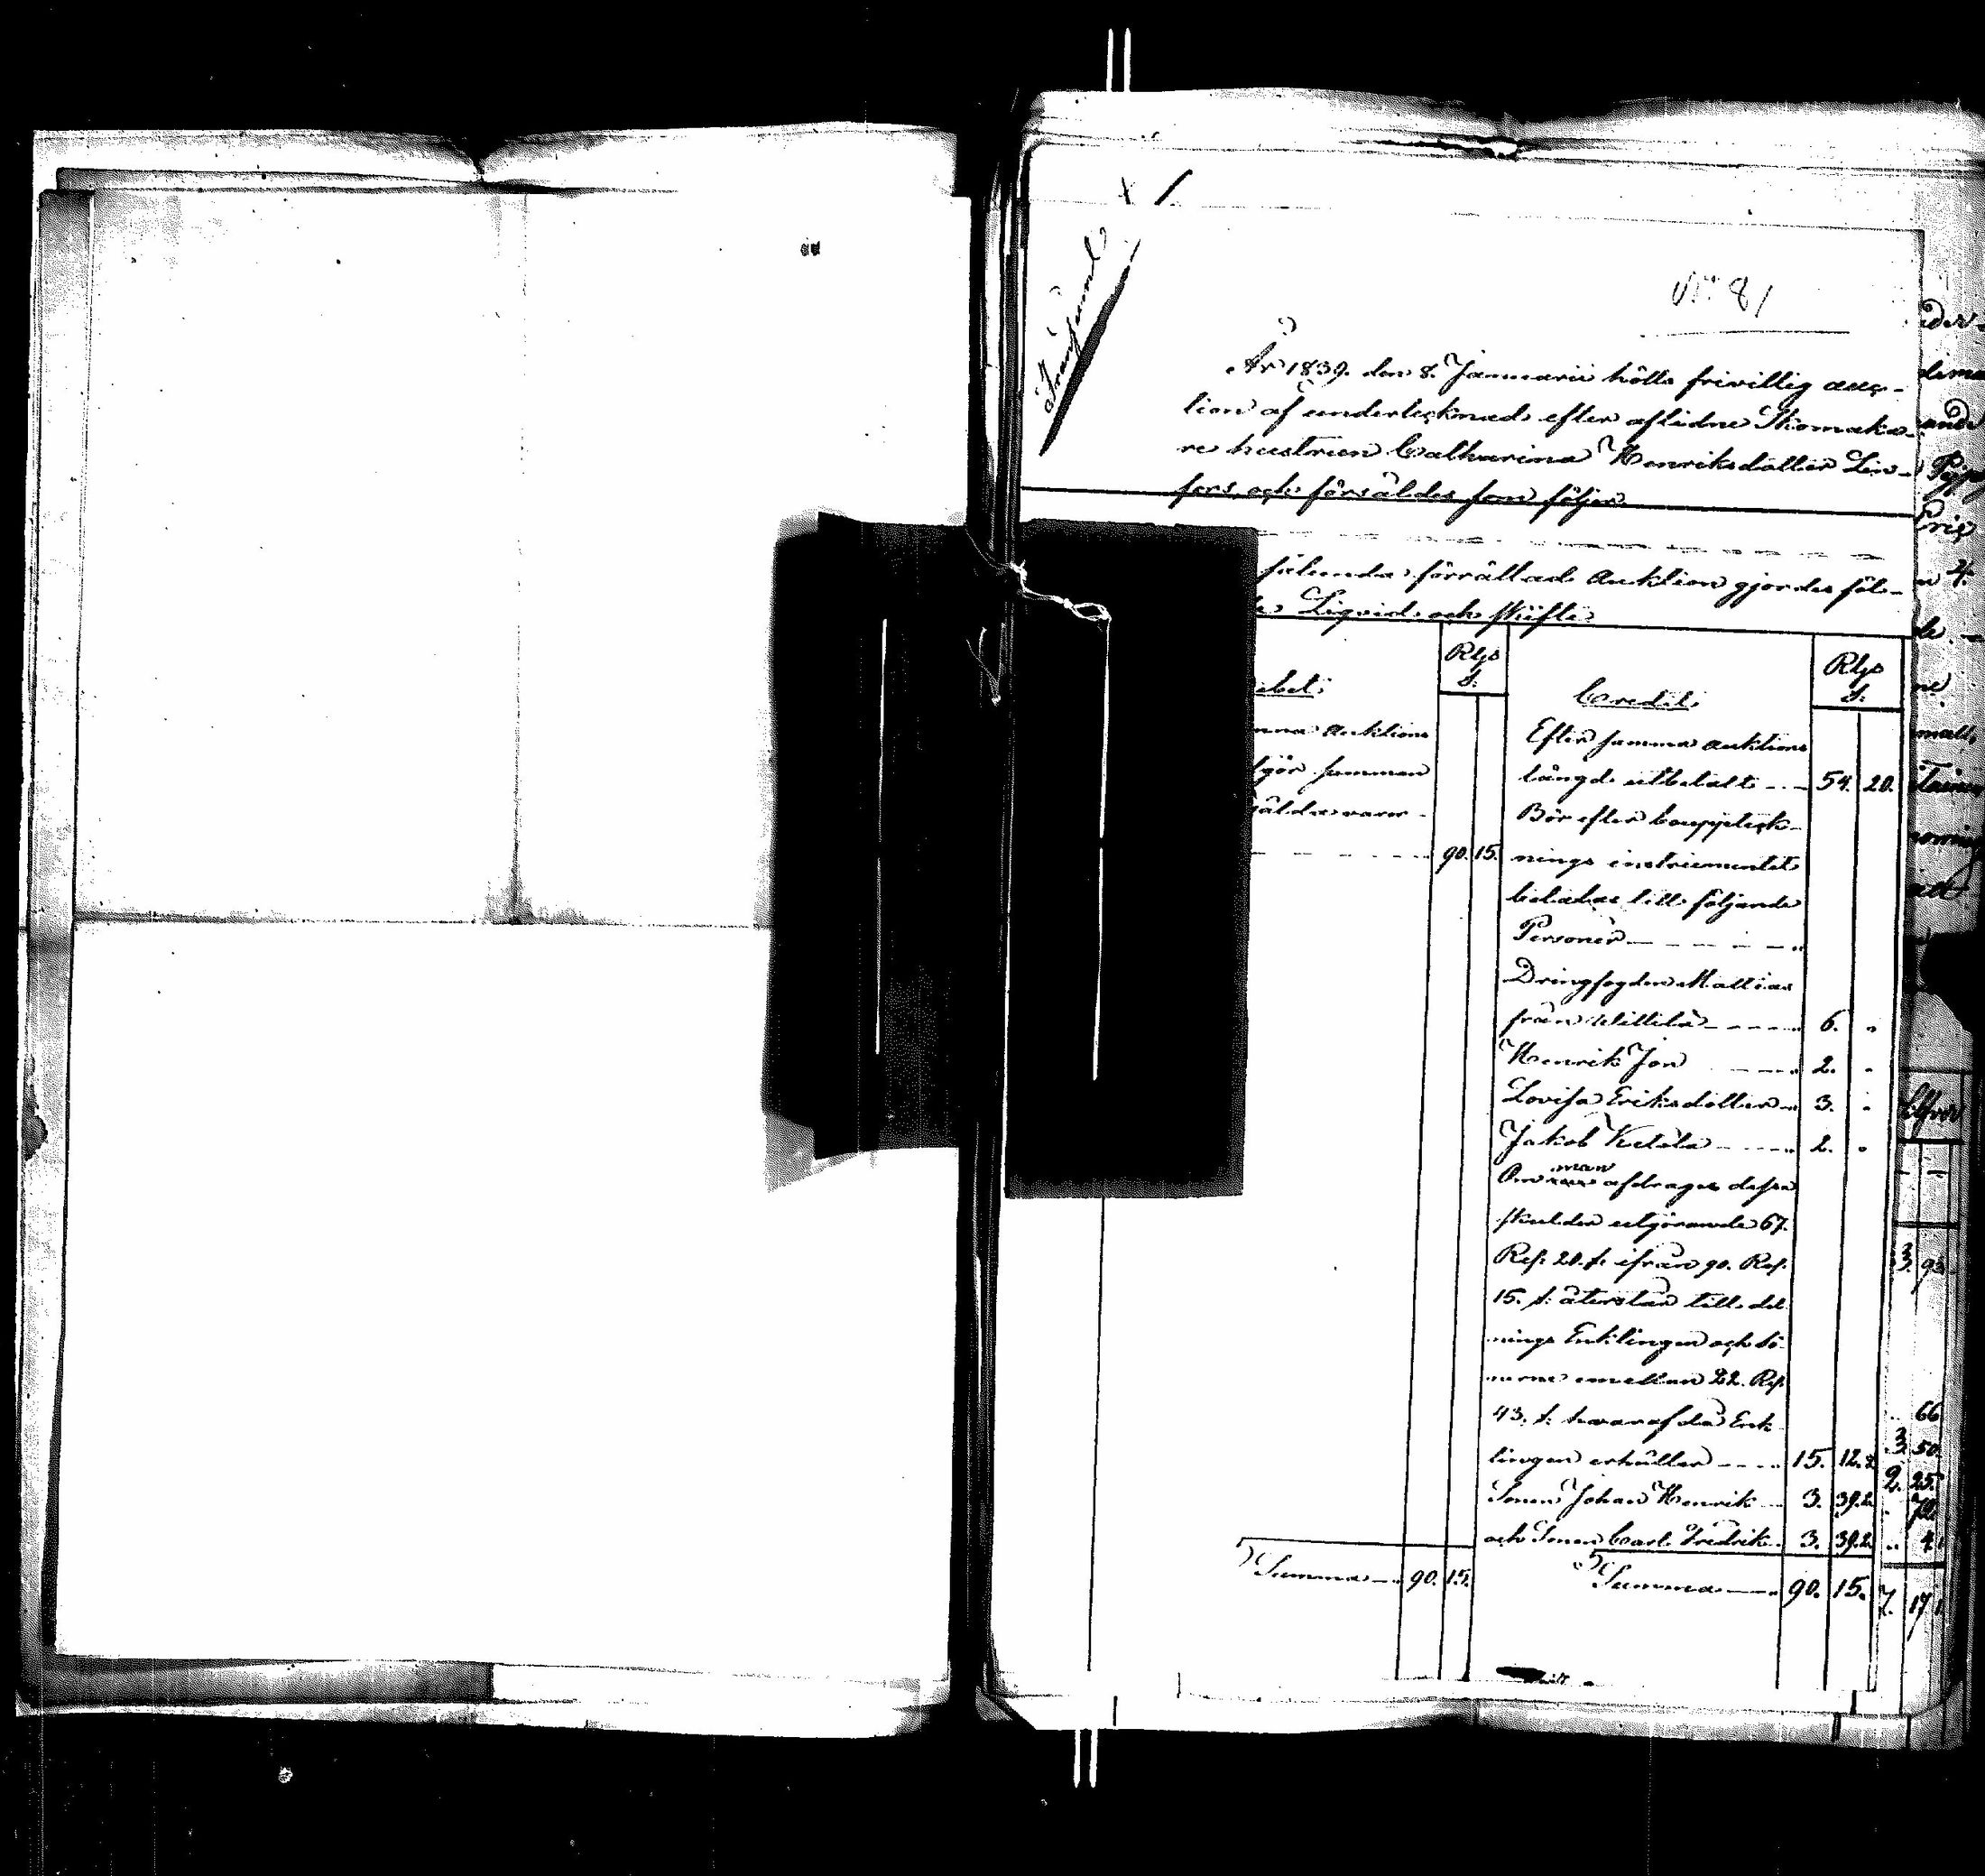 Nº 81
År 1839. den 8. Januarii hölls frivillig auc-
tion af undertecknad efter aflidne Skomaka-
re hustrun Catharina Henriksdotter Lin-
fors, och försåldes som följer
sålunda förrättad Auktion gjordes föl-
Liqvid och skifte
Rbs
S:
Credit
Rbs
S:
Auktions
summan
varor
90. 15.
Efter samma auktions
längd utbetalt 54. 20.
Bör efter bouppteck-
nings instrumentet
betalas till följande
Personer
Drängfogden Mattias
från 6.
Henrik Jon 2.
Lovisa Eriksdotter 3.
Jakob Ketola 2.
Om man afdrager dessa
skulder utgörande 67.
Rbs 20. s: ifrån 90. Rbs
15. s: återstår till del
nings Enklingen och sö-
nerne emellan 22. Rbs
43. s: hvaraf då Enk
lingen erhåller 15. 12.2
Sonen Johan Henrik 3. 39.2
och Sonen Carl Fredrik 3. 39.2
Summa 90. 15.
Summa 90. 15.